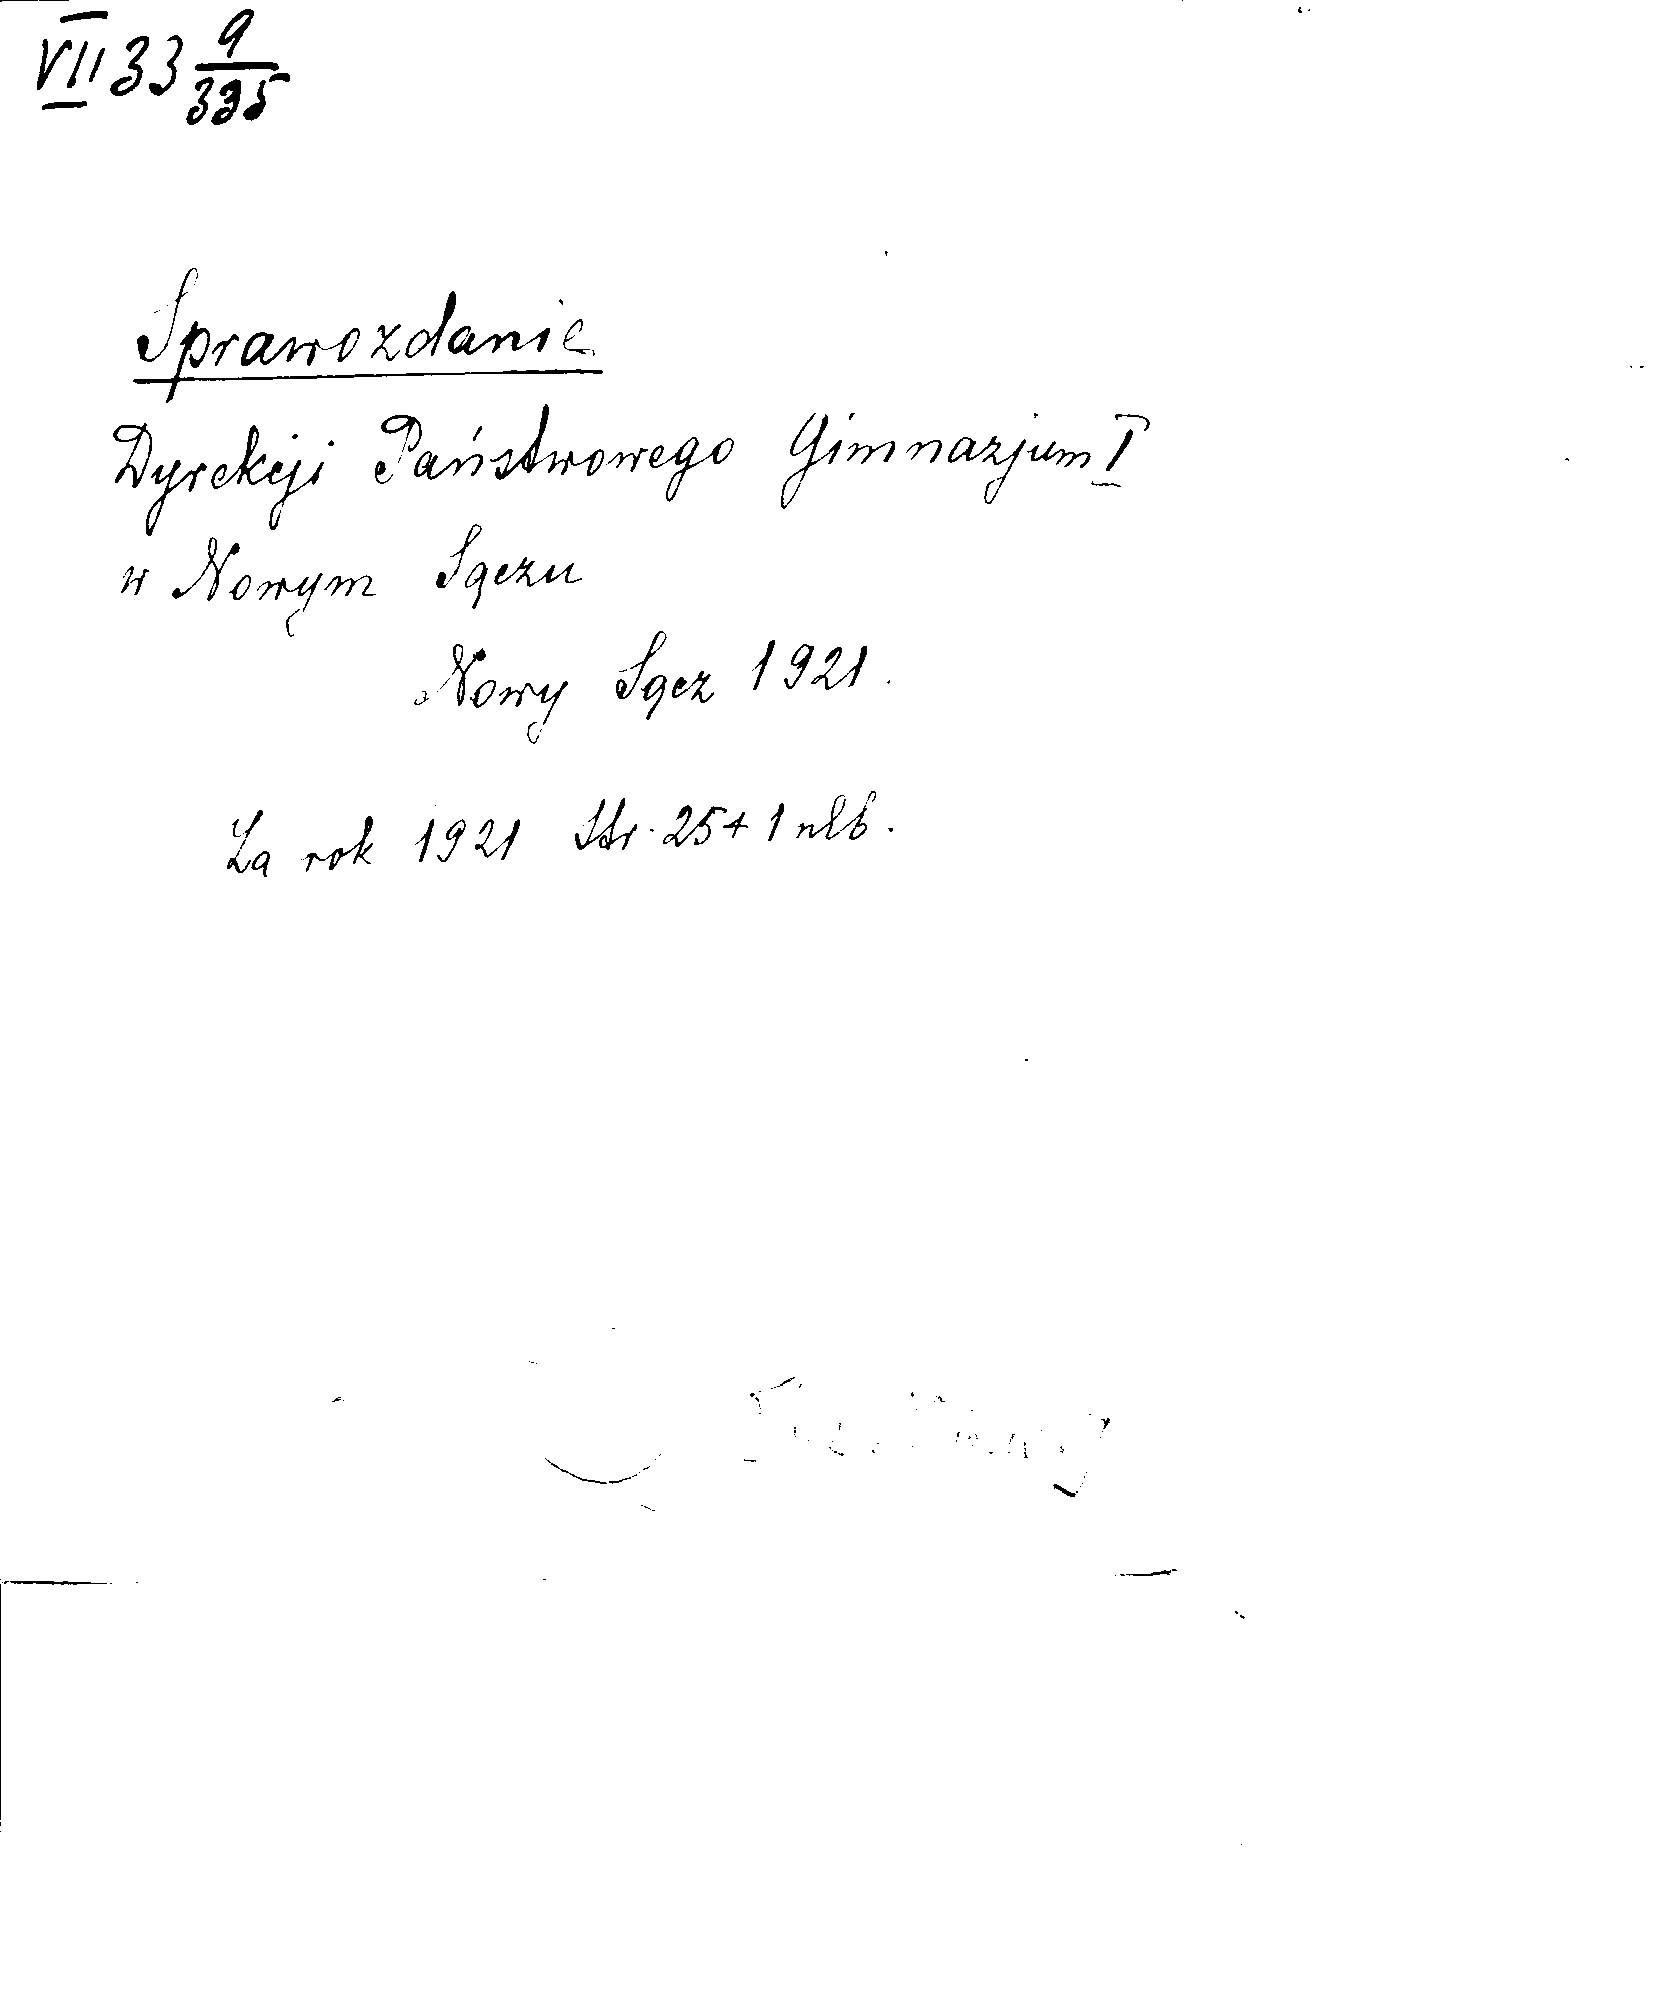 VII 33 9/335
Sprawozdanie
Dyrekcji Państwowego Gimnazjum I
w Nowym Sączu
Nowy Sącz 1921.
Za rok 1921 Str. 25 + 1 nlb.